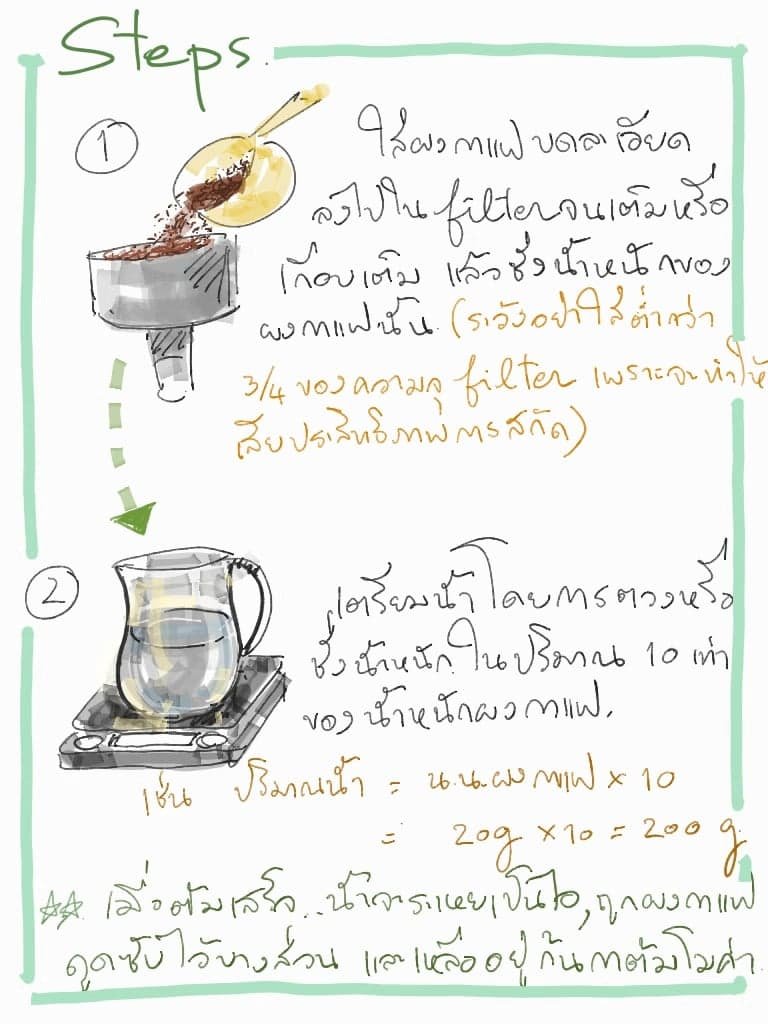 Steps.
1
ใส่ผงกาแฟบดละเอียด
ลงไปใน filter จนเต็มหรือ
เกือบเต็ม แล้วชั่งน้ำหนักของ
ผงกาแฟนั้น (ระวังอย่าใส่ต่ำกว่า
3/4 ของความจุ filter เพราะจะทำให้
เสียประสิทธิภาพการสกัด)
2
เตรียมน้ำ โดยการตวงหรือ
ชั่งน้ำหนัก ในปริมาณ 10 เท่า
ของน้ำหนักผงกาแฟ.
เช่น ปริมาณน้ำ = น.น.ผงกาแฟ × 10
= 20g × 10 = 200 g.
☆☆ เมื่อต้มเสร็จ..น้ำจะระเหยเป็นไอ, ถูกผงกาแฟ
ดูดซับไว้บางส่วน และเหลืออยู่ก้นกาต้มโมค่า.